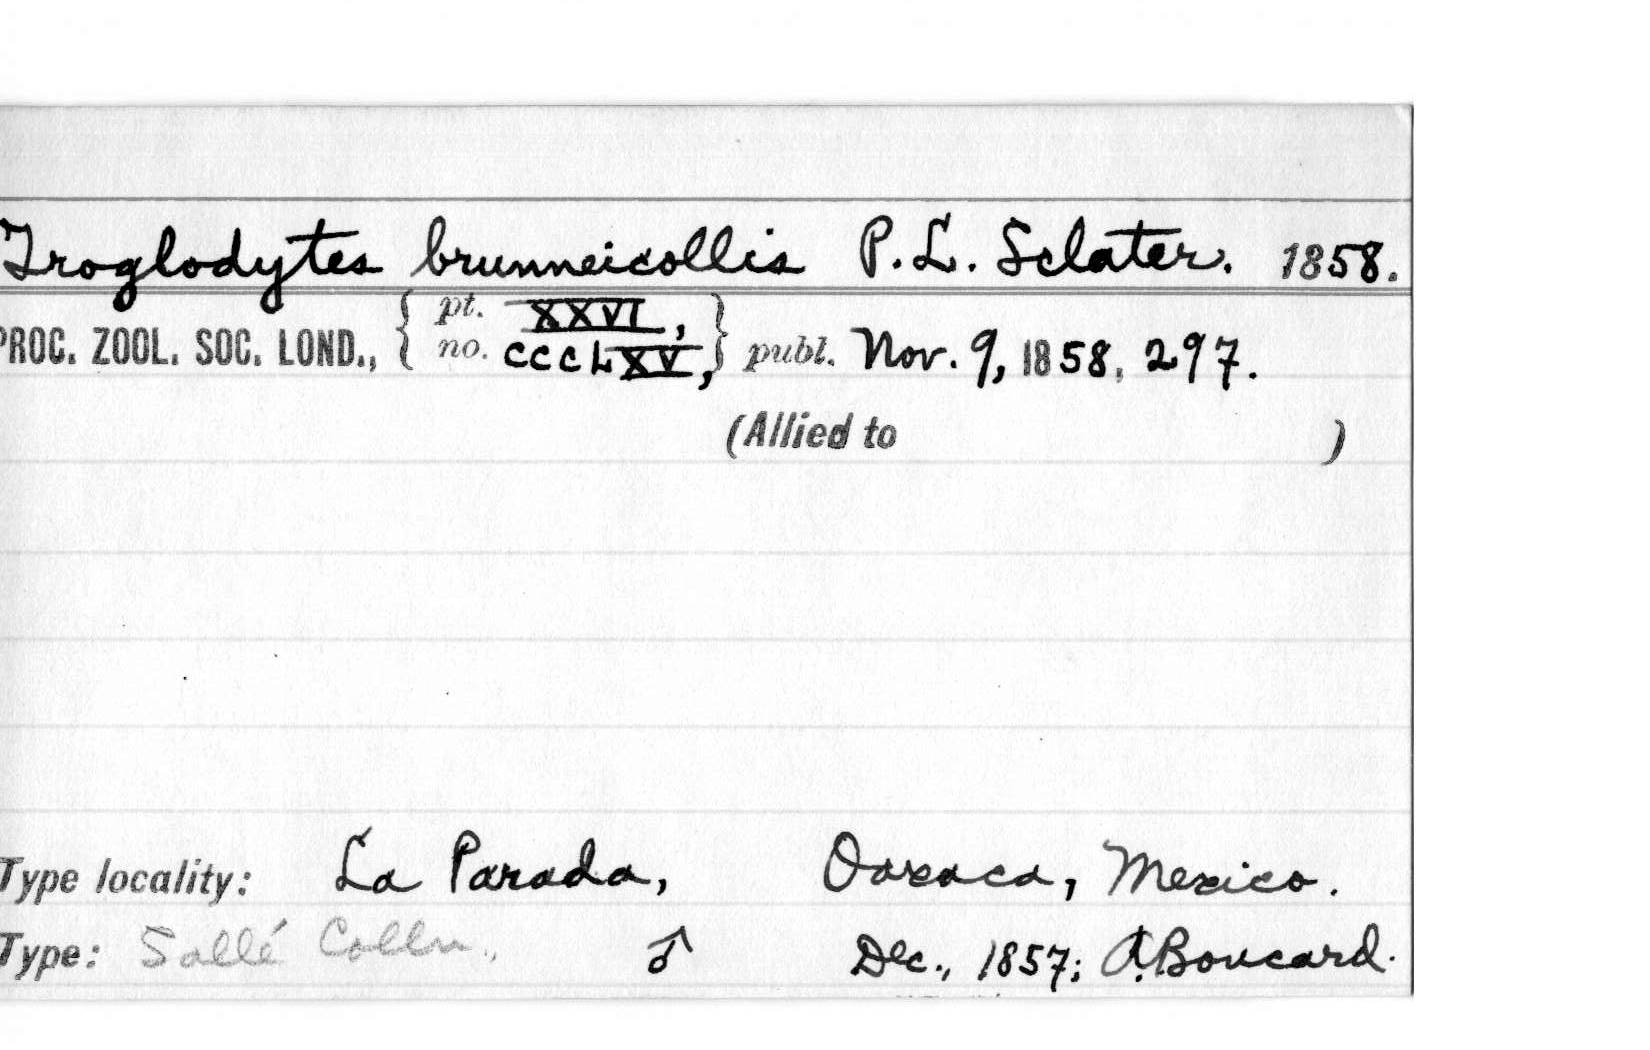 Troglodytes brunneicollis P. L. Sclater. 1858.
PROC. ZOOL. SOC. LOND., { pt. XXVI, no. CCCLXV, } publ. Nov. 9, 1858, 297.
(Allied to )
Type locality: La Parada, Oaxaca, Mexico.
Type: Sallé Colln. ♂ Dec., 1857; A. Boucard.